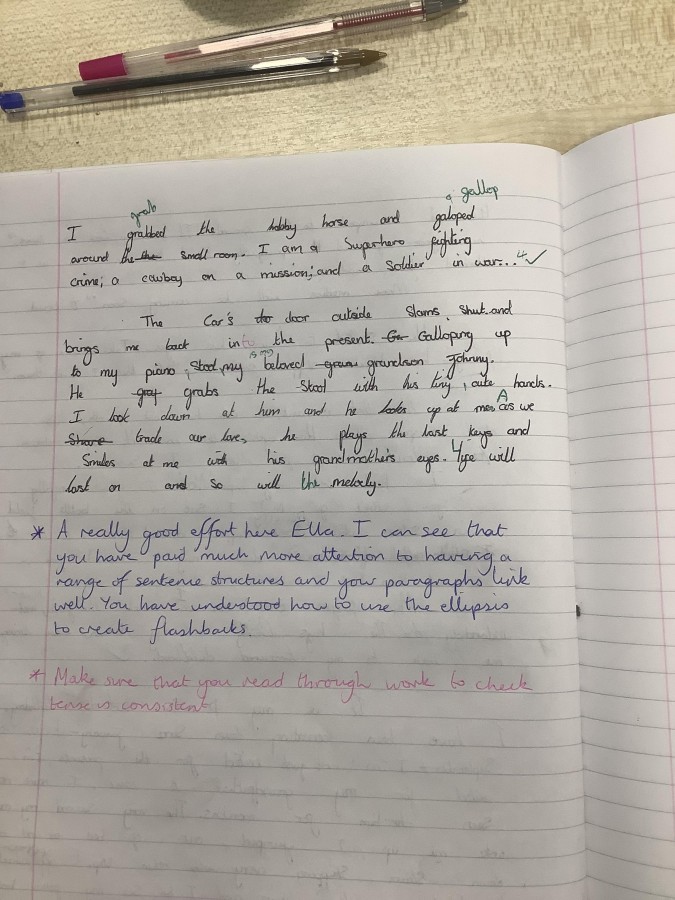 grab & gallop
I grabbed the hobby horse and galoped
around the the small room. I am a Superhero fighting
crime; a cowboy on a mission; and a Soldier in war...
The Car's door outside Slams Shut and
brings me back into the present. Galloping up
to my piano Stool, is my beloved grandson Johnny.
He grabs the Stool with his tiny, cute hands.
I look down at him and he looks up at me as A we
Share trade our love, he plays the last keys and
Smiles at me with his grandmother's eyes. will
last on and so will the melody.
* A really good effort here Ella. I can see that
you have paid much more attention to having a
range of sentence structures and your paragraphs link
well. You have understood how to use the ellipsis
to create flashbacks.
* Make sure that you read through work to check
tense is consistent